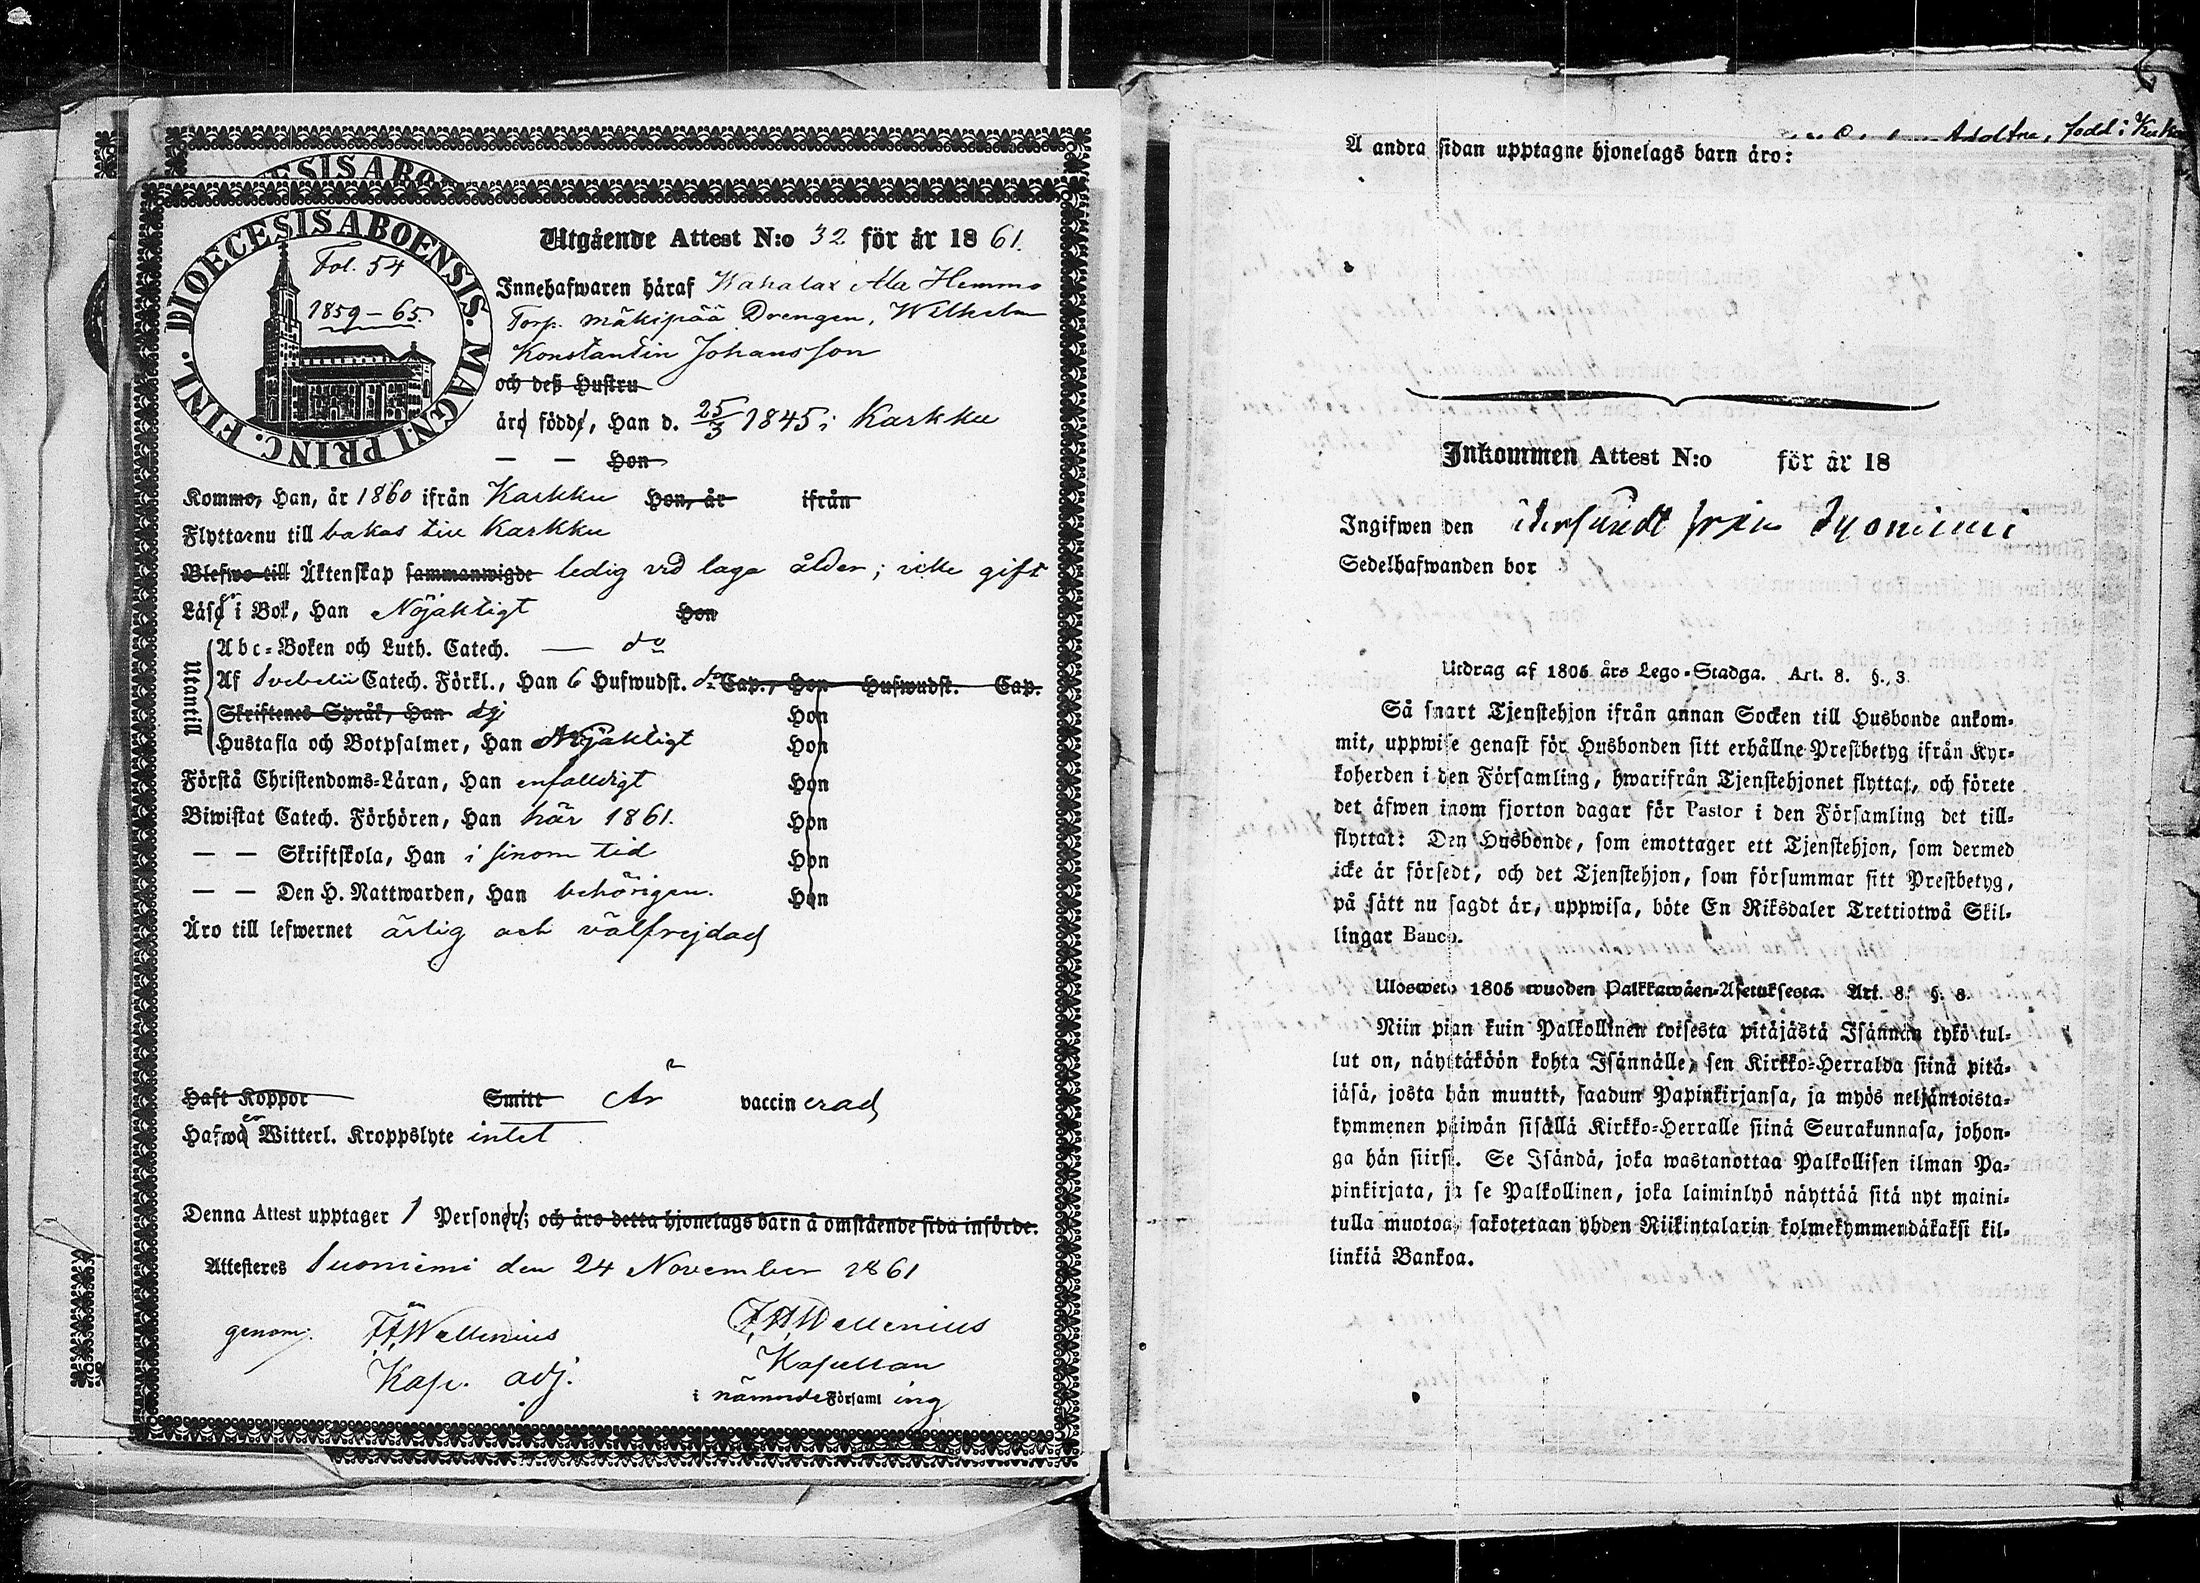 DIOECESIS ABOENSIS. MAGNI PRINC. FINL.
Fol. 54
1859-65.
Utgående Attest N:o 32 för år 1861.
Innehafwaren häraf Kakalax Ala Hemmo
Torp. Mäkipää Drengen, Wilhelm
Konstantin Johansson
och deß Hustru
äro född, Han d. 25/3 1845 i Karkku
— — Hon
Kommo, Han, år 1860 ifrån Karkku Hon, år ifrån
Flyttar nu till bakas till Karkku
Blefwo till Äktenskap sammanwigde ledig vid laga ålder; icke gift
Läser i Bok, Han Nöjaktigt Hon
Utantill
Abc-Boken och Luth. Catech. — do
Af Svebelii Catech. Förkl., Han 6 Hufwudst. Cap., Hon Hufwudst. Cap.
Skriftenes Språk, Han ej Hon
Hustafla och Botpsalmer, Han Nöjaktigt Hon
Förstå Christendoms-Läran, Han enfalldigt Hon
Biwistat Catech. Förhören, Han här 1861. Hon
— — Skriftskola, Han i sinom tid Hon
— — Den H. Nattwarden, Han behörigen. Hon
Äro till lefwernet ärlig och välfrejdad
Haft Koppor Smitt Är vaccinerad
Hafwer Witterl. Kroppslyte intet
Denna Attest upptager 1 Personer; och äro detta hjonelags barn å omstående sida införde.
Attesteres Suoniemi den 24 November 1861
genom: F.F. Wallenius
Kap. adj.
F.H. Wallenius
Kapellan
i nämnde Församling
född i
Å andra sidan upptagne hjonelags barn äro:
Inkommen Attest N:o för år 18
Ingifwen den återsändt från Suoniemi
Sedelhafwanden bor
Utdrag af 1805 års Lego-Stadga. Art. 8. §. 3.
Så snart Tjenstehjon ifrån annan Socken till Husbonde ankom-
mit, uppwise genast för Husbonden sitt erhållne Prestbetyg ifrån Kyr-
koherden i den Församling, hwarifrån Tjenstehjonet flyttat, och förete
det äfwen inom fjorton dagar för Pastor i den Församling det till-
flyttat: Den Husbonde, som emottager ett Tjenstehjon, som dermed
icke är försedt, och det Tjenstehjon, som försummar sitt Prestbetyg,
på sätt nu sagdt är, uppwisa, böte En Riksdaler Trettiotwå Skil-
lingar Banco.
Ulosweto 1805 wuoden Palkkawäen-Asetuksesta. Art. 8. §. 3.
Niin pian kuin Palkollinen toisesta pitäjästä Isännän tykö tul-
lut on, näyttäköön kohta Isännälle, sen Kirkko-Herralda siinä pitä-
jäsä, josta hän muutti, saadun Papinkirjansa, ja myös neljäntoista-
kymmenen päiwän sisällä Kirkko-Herralle siinä Seurakunnasa, johon-
ga hän siirsi. Se Isändä, joka wastanottaa Palkollisen ilman Pa-
pinkirjata, ja se Palkollinen, joka laiminlyö näyttää sitä nyt maini-
tulla muotoa, sakotetaan yhden Riikintalarin kolmekymmendäkaksi kil-
linkiä Bankoa.